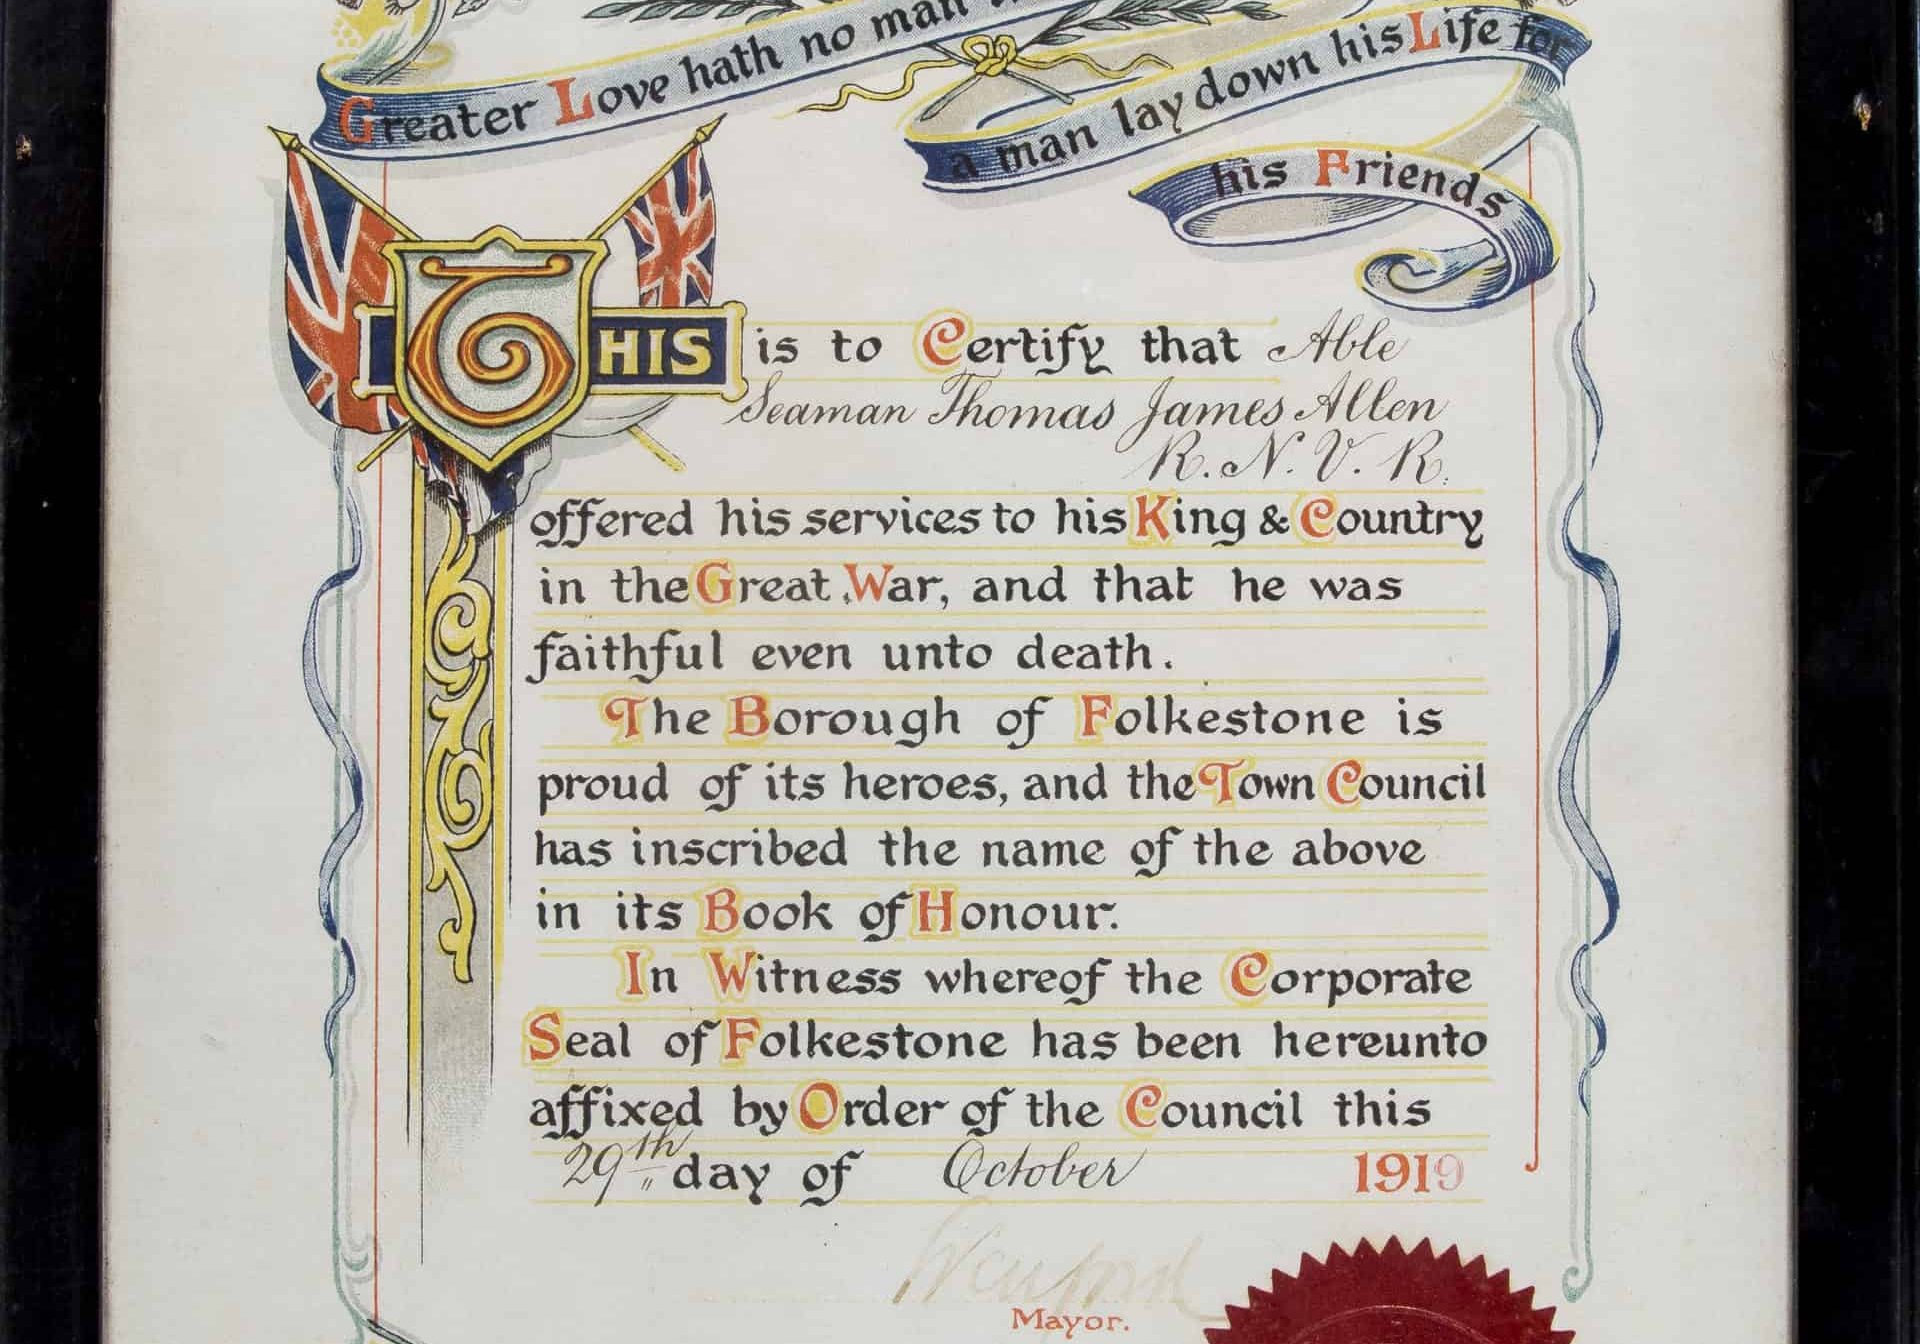 Greater Love hath no man
a man lay down his Life for
his Friends
THIS is to Certify that Able
Seaman Thomas James Allen
R. N. V. R.
offered his services to his King & Country
in the Great War, and that he was
faithful even unto death.
The Borough of Folkestone is
proud of its heroes, and the Town Council
has inscribed the name of the above
in its Book of Honour.
In Witness whereof the Corporate
Seal of Folkestone has been hereunto
affixed by Order of the Council this
29th day of October 1919
Mayor.